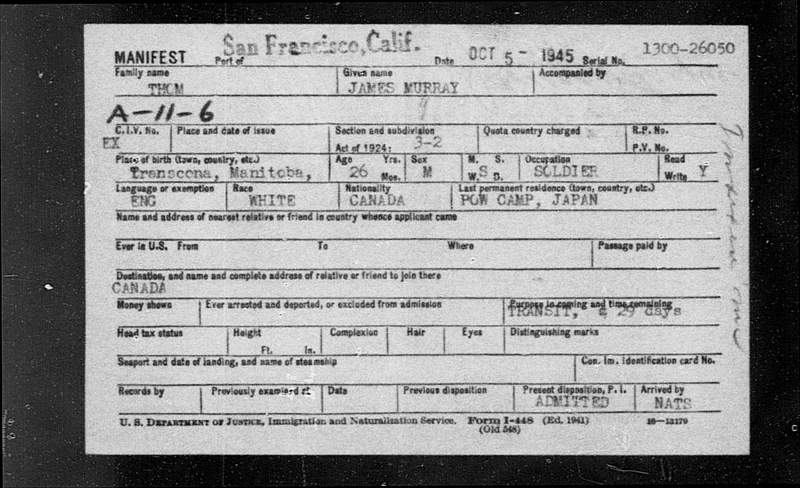 MANIFEST Port of San Francisco, Calif. Date OCT 5- 1945 Serial No. 1300-26050
Family name Given name Accompanied by
THOM JAMES MURRAY
A-11-6
C.I.V. No. Place and date of issue Section and subdivision Quota country charged R.P. No.
EX Act of 1924: 3-2 P.V. No.
Place of birth (town, country, etc.) Age Yrs. Sex M. S. Occupation Read
Transcona, Manitoba, 26 Mos. M W. S D. SOLDIER Write Y
Language or exemption Race Nationality Last permanent residence (town, country, etc.)
ENG WHITE CANADA POW CAMP, JAPAN
Name and address of nearest relative or friend in country whence applicant came
Ever in U.S. From To Where Passage paid by
Destination, and name and complete address of relative or friend to join there
CANADA
Money shown Ever arrested and deported, or excluded from admission Purpose in coming and time remaining
TRANSIT, 29 days
Head tax status Height Complexion Hair Eyes Distinguishing marks
Ft. In.
Seaport and date of landing, and name of steamship Con. Im. Identification card No.
Records by Previously examined at Date Previous disposition Present disposition, P. I. Arrived by
ADMITTED NATS
U. S. DEPARTMENT OF JUSTICE, Immigration and Naturalization Service. Form I-448 (Ed. 1941) 16-13179
(Old 548)